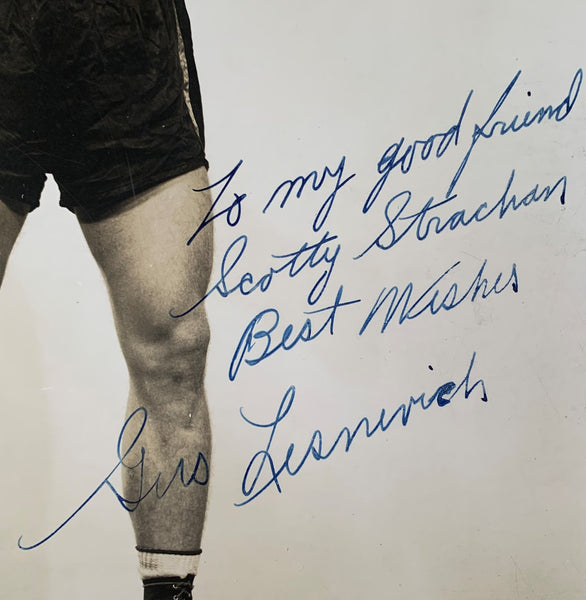 To my good friend
Scotty Strachan
Best Wishes
Gus Lesnevich